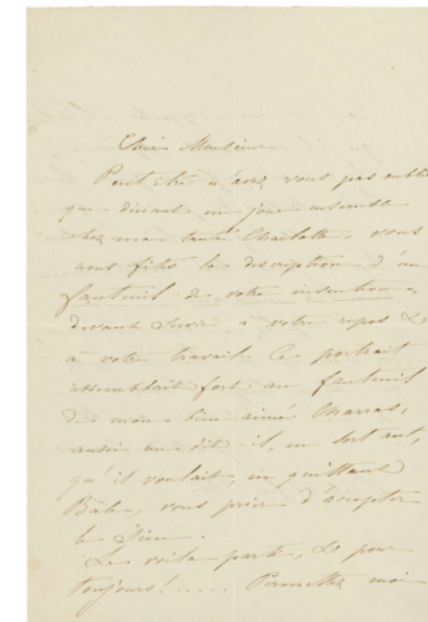 Cher Monsieur
Peut être n'avez vous pas oublié
que dinant un jour ensemble
chez ma tante Charlotte vous
nous fîtes la description d'un
fauteuil de votre invention,
devant servir à votre repos &
à votre travail. Ce portrait
ressemblait fort au fauteuil
de mon bien aimé Charras,
aussi me dit-il, en sortant,
qu'il voulait, en quittant
Bâle, vous prier d'accepter
le sien.
Le voila parti, & pour
toujours! ..... Permettez moi